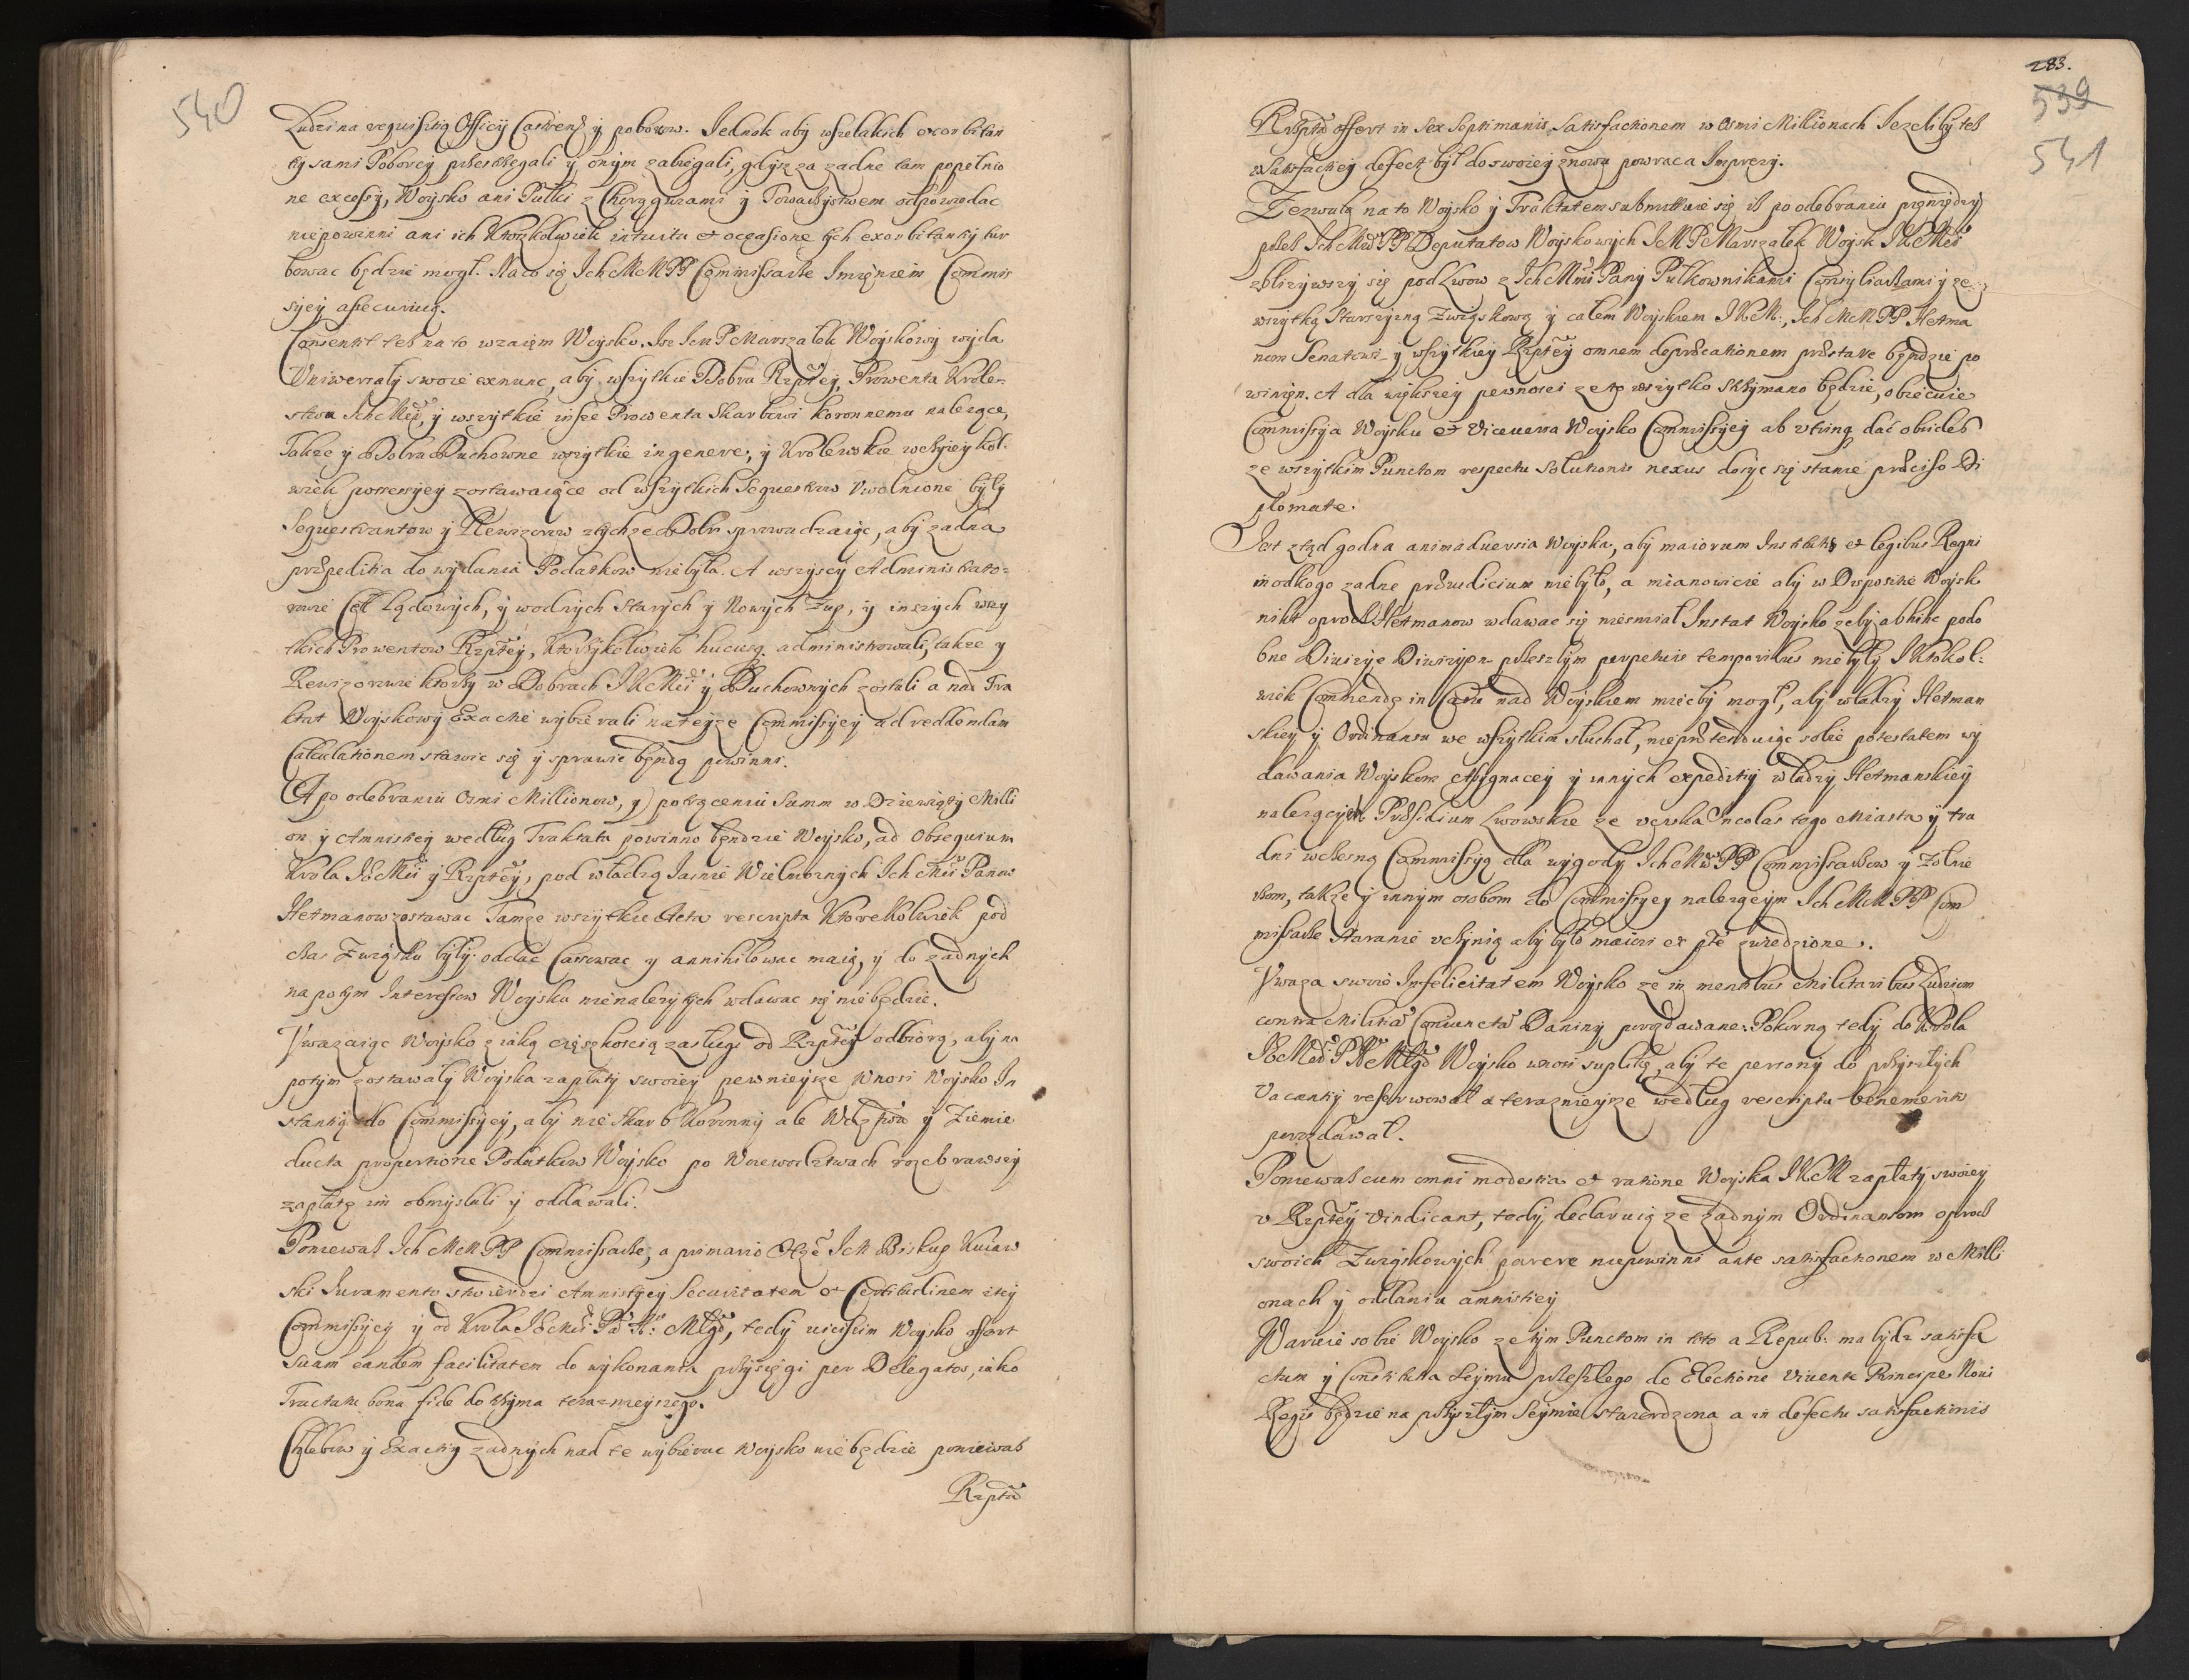 540
Ludzi na requisitią Officij Castrens y poborow. Jednak aby wszelakich exorbitan
ty sami Poborcy przestrzegali y onym zabiegali, gdysz za zadne tam popełnio
ne excessy, Woysko ani Pułki z Chorągwiami y Towarzystwem odpowiedac
niepowinni ani ich Ktoszkolwiek intuitu et occasione tych exorbitantiy tur
bowac będzie mogł. Na co się Ich MM PP Commissarze Imięniem Commis
syey assecuruią.
Consentit tesz na to wzaięm Woysko. Ize Jeo P Marszałek Woyskowy wyda
Uniwersały swoie exnunc, aby wszytkie Dobra Rzptey, Prowenta Krole
stwa Ich Mci, y wszytkie insze Prowenta Skarbowi koronnemu nalezące,
Takze y Dobra Duchowne wszytkie in genere, y Krolewskie w czyieykol-
wiek possessyey zostawaiące od wszytkich Sequestrow Uwolnione były
Sequestrantow y Rewizorow z tychze Dobr sprowadzaiąc, aby zadna
præpeditia do wydania Podatkow niebyła. A wszyscy Administrato-
rowie Ceł Lądowych, y wodnych Starych y Nowych Zup, y inszych wszy
tkich Prowentow Rzptey, Ktorzykolwiek hucusq. administrowali, takze y
Rewizorowie ktorzy w Dobrach JKMci y Duchownych zostali a nad Tra
ktat Woyskowy Exactie wybierali na teyze Commissyey ad reddendam
Calculationem stawic się y sprawic będą powinni.
A po odebraniu Osmi Millionow, y potrąceniu Summ w Dziewiąty Milli
on y Amnistiey według Traktatu powinno będzie Woysko, ad Obsequium
Krola JoMci y Rzptey, pod władzą Jasnie Wielmoznych Ich Mci Panow
Hetmanow zostawac Tamze wszytkie Acta rescripta Ktorekolwiek pod
czas Związku były oddac Cassowac y annihilowac maią, y do zadnych
napotym Interessow Woysku nienalezytych wdawac się niebędzie.
Uwazaiąc Woysko z iaką cięszkoscią zasługi od Rzptey odbiorą, aby na
potym zostawały Woyska zapłaty swoiey pewnieysze Wnosi Woysko In
stantią do Commissyey, aby nie Skarb Koronny ale Wdztwa y Ziemie
ducta proportione Podatkow Woysko po Woiewodztwach rozebrawszy
zapłatę im obmyslali y oddawali.
Poniewasz Ich MM PP Commissarze, a primario Xże JeM Biskup Kuiaw
ski Iuramento stwierdzi Amnistyey Securitatem et Certitudinem tey
Commissyey y od Krola JeoMci Pa N: Młgo, tedy vicissim Woysko offert
Suam eandem facilitatem do wykonania przysięgi per Delegatos, iako
Tractatu bona fide dotrzyma teraznieyszego.
Chlebow y Exactiy zadnych nad te wybierac Woysko nie będzie poniewasz
Rzpta
283.
539
541
Rzpta offert in sex Septimanis Satisfactionem w Osmi Millionach Jezeliby tesz
w Satisfactiey defect był do swoiey znowu powraca Imprezy.
Zezwala na to Woysko y Traktatem submittuie się isz po odebraniu pieniędzy
przesz Ich Mci PP Deputatow Woyskowych JeM P Marszałek Woysk JKMci
zblizywszy się pod Lwow z Ich Mmi Pany Pułkownikami Consyliarzami y ze
wszytką Starszyzną Związkową y całem Woyskiem JKM:, Ich MM PP Hetma
nom Senatowi y wszytkiey Rzptey omnem deprecationem præstare będzie po
winien. A dla większey pewnosci ze to wszytko strzymano będzie, obiecuie
Commissyja Woysku et Viceversa Woysko Commissyey ab utrinq dać obsides
ze wszytkim Punctom respectu Solutionis nexus dosyc się stanie præciso Di
plomate.
Jest ztąd godna animadversia Woyska, aby maiorum Institutis et legibus Regni
in odkogo zadne præiudicium niebyło, a mianowicie aby w Disposicie Woysk
nikt oprocz Hetmanow wdawac się niesmiał Instat Woysko zeby abhinc podo
bne Diwizye Diwizyom przeszłym perpetuis temporibus niebyły Iktokol-
wiek Commendę in Casu nad Woyskiem miećby mogł, aby władzy Hetman
skiey y Ordinansu we wszytkim słuchał, nieprætenduiąc sobie potestatem wy
dawania Woyskom Assygnacey y innych expeditiy władzy Hetmanskiey
nalezących Præsidium Lwowskie ze vciska Incolas tego Miasta y tru
dni wczesną Commissyą dla wygody Ich Mw PP Commissarzow y Zołnie
rzom, takze y innym osobom do Commissyey nalezącym Ich MM PP Com
missarze Staranie vczynią aby było maiori ex pte zwiedzione.
Uwaza swoie Infelicitatem Woysko ze in mentibus Militaribus Ludziom
contra Militia Coniuncta Daniny porozdawane. Pokorną tedy do Krola
JoMci P N Młgo Woysko wnosi suplikę, aby te persony do przyszłych
Vacantiy reserwował a teraznieysze według rescriptu benemeritis
porozdawał.
Poniewasz cum omni modestia et ratione Woyska JKM zapłaty swoiey
v Rzptey vindicant, tedy declaruią ze zadnym Ordinansom oprocz
swoich Związkowych parere niepowinni ante satisfactionem w Milli
onach y oddaniu amnistiey
Waruie sobie Woysko ze tym Punctom in toto a Repub. ma bydz satisfa
ctum y Constitutia Seymu przeszłego de Electione Vivente Principe Novi
Regis będzie na przyszłym Seymie stwierdzona a in defectu satisfactionis